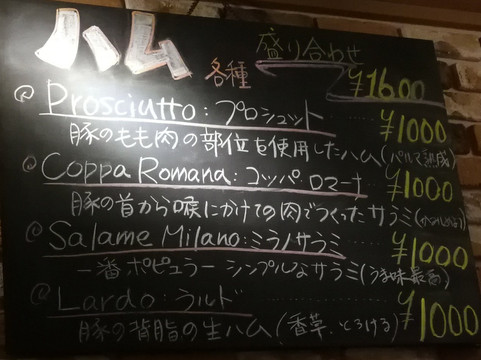 ハム 各種 盛り合わせ ¥1600
@ Prosciutto:プロシュット ¥1000
豚のもも肉の部位を使用したハム(パルマ熟成)
@ Coppa Romana:コッパ・ロマーナ ¥1000
豚の首から喉にかけての肉でつくったサラミ
@ Salame Milano:ミラノサラミ ¥1000
一番ポピュラー シンプルなサラミ(うま味最高)
@ Lardo:ラルド ¥1000
豚の背脂の生ハム(香草、とろける)